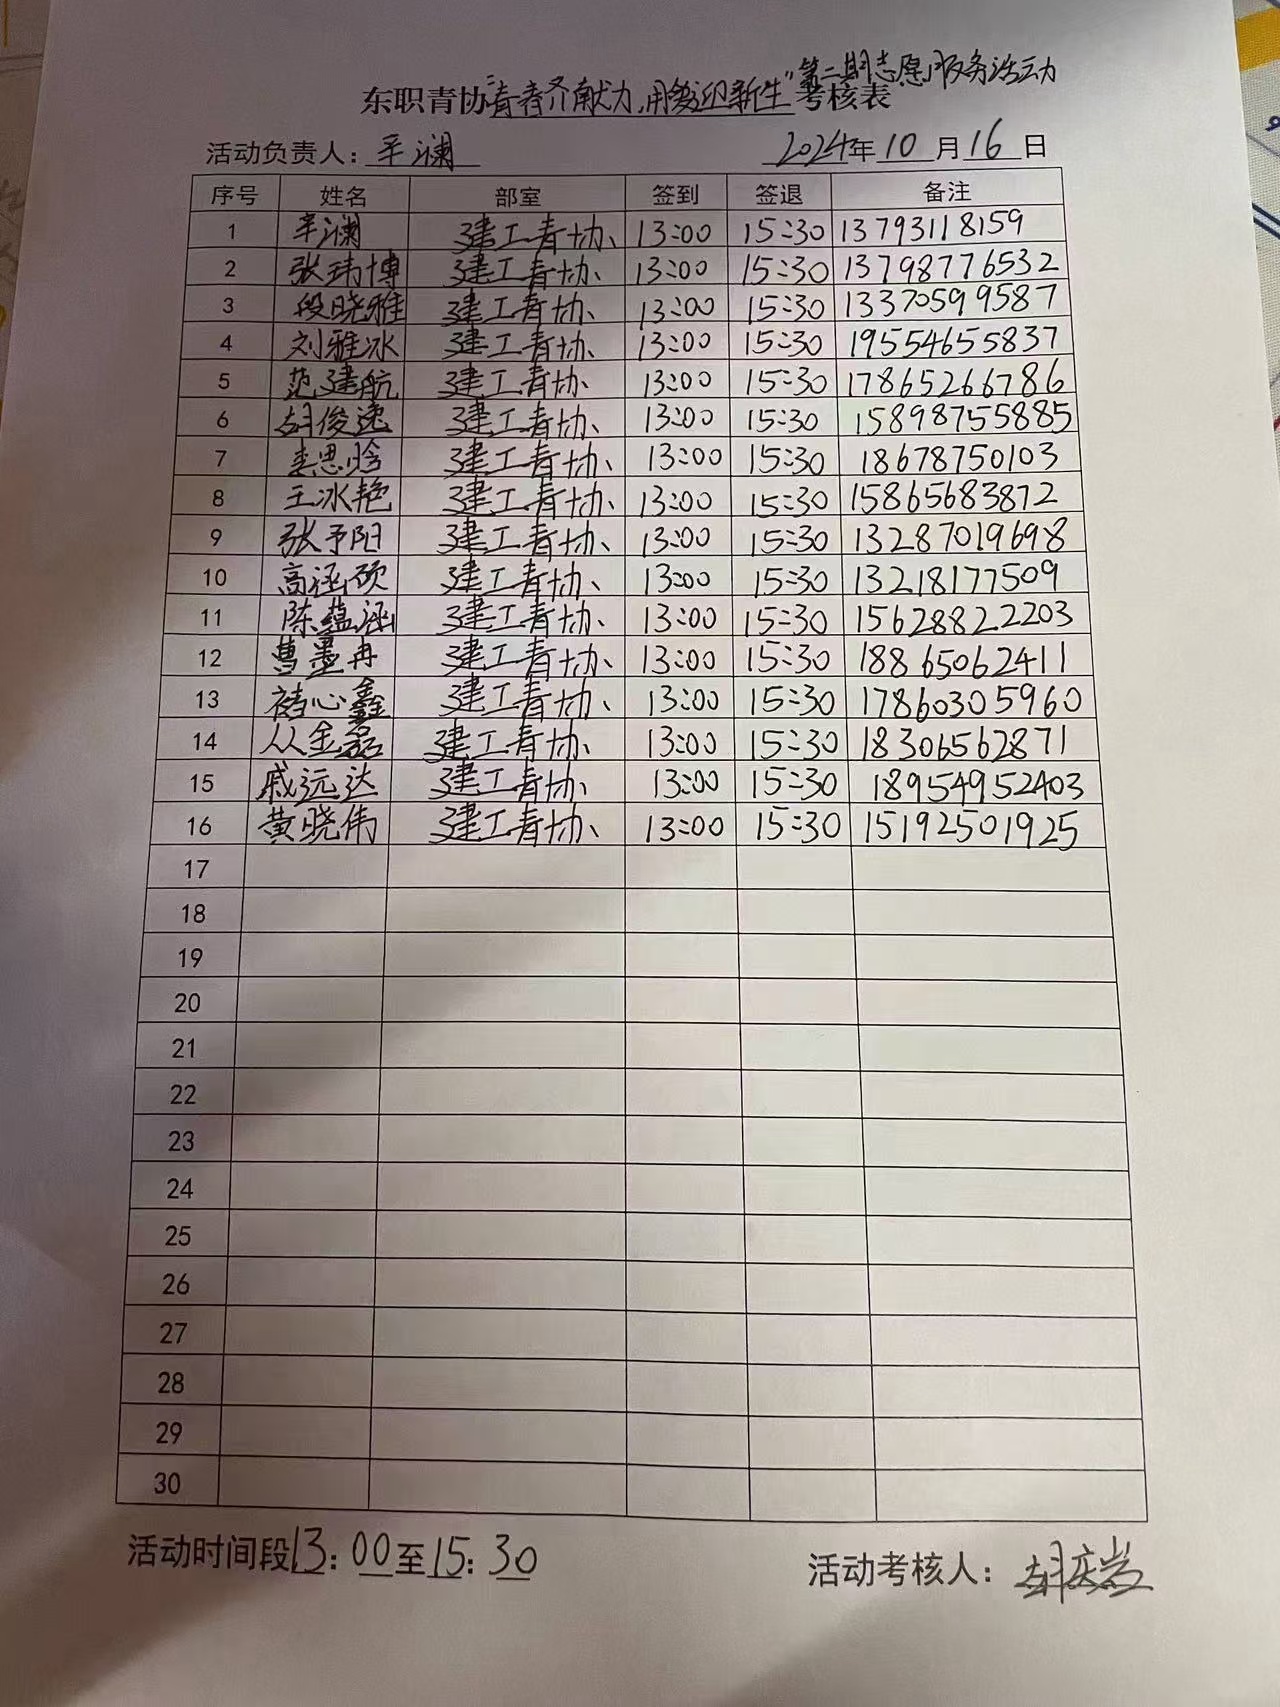 东职青协"青春齐献力,用爱迎新生"第二期志愿服务活动考核表
活动负责人:辛澜 2024年10月16日
序号 姓名 部室 签到 签退 备注
1 辛澜 建工青协 13:00 15:30 13793118159
2 张玮博 建工青协 13:00 15:30 13798776532
3 段晓雅 建工青协 13:00 15:30 13370599587
4 刘雅冰 建工青协 13:00 15:30 19554655837
5 范建航 建工青协 13:00 15:30 17865266786
6 胡俊逸 建工青协 13:00 15:30 15898755885
7 李思晗 建工青协 13:00 15:30 18678750103
8 王冰艳 建工青协 13:00 15:30 15865683872
9 张予阳 建工青协 13:00 15:30 13287019698
10 高涵硕 建工青协 13:00 15:30 13218177509
11 陈蕴涵 建工青协 13:00 15:30 15628822203
12 曹墨冉 建工青协 13:00 15:30 18865062411
13 褚心鑫 建工青协 13:00 15:30 17860305960
14 从金磊 建工青协 13:00 15:30 18306562871
15 戚远达 建工青协 13:00 15:30 18954952403
16 黄晓伟 建工青协 13:00 15:30 15192501925
17
18
19
20
21
22
23
24
25
26
27
28
29
30
活动时间段13:00至15:30 活动考核人:胡庆